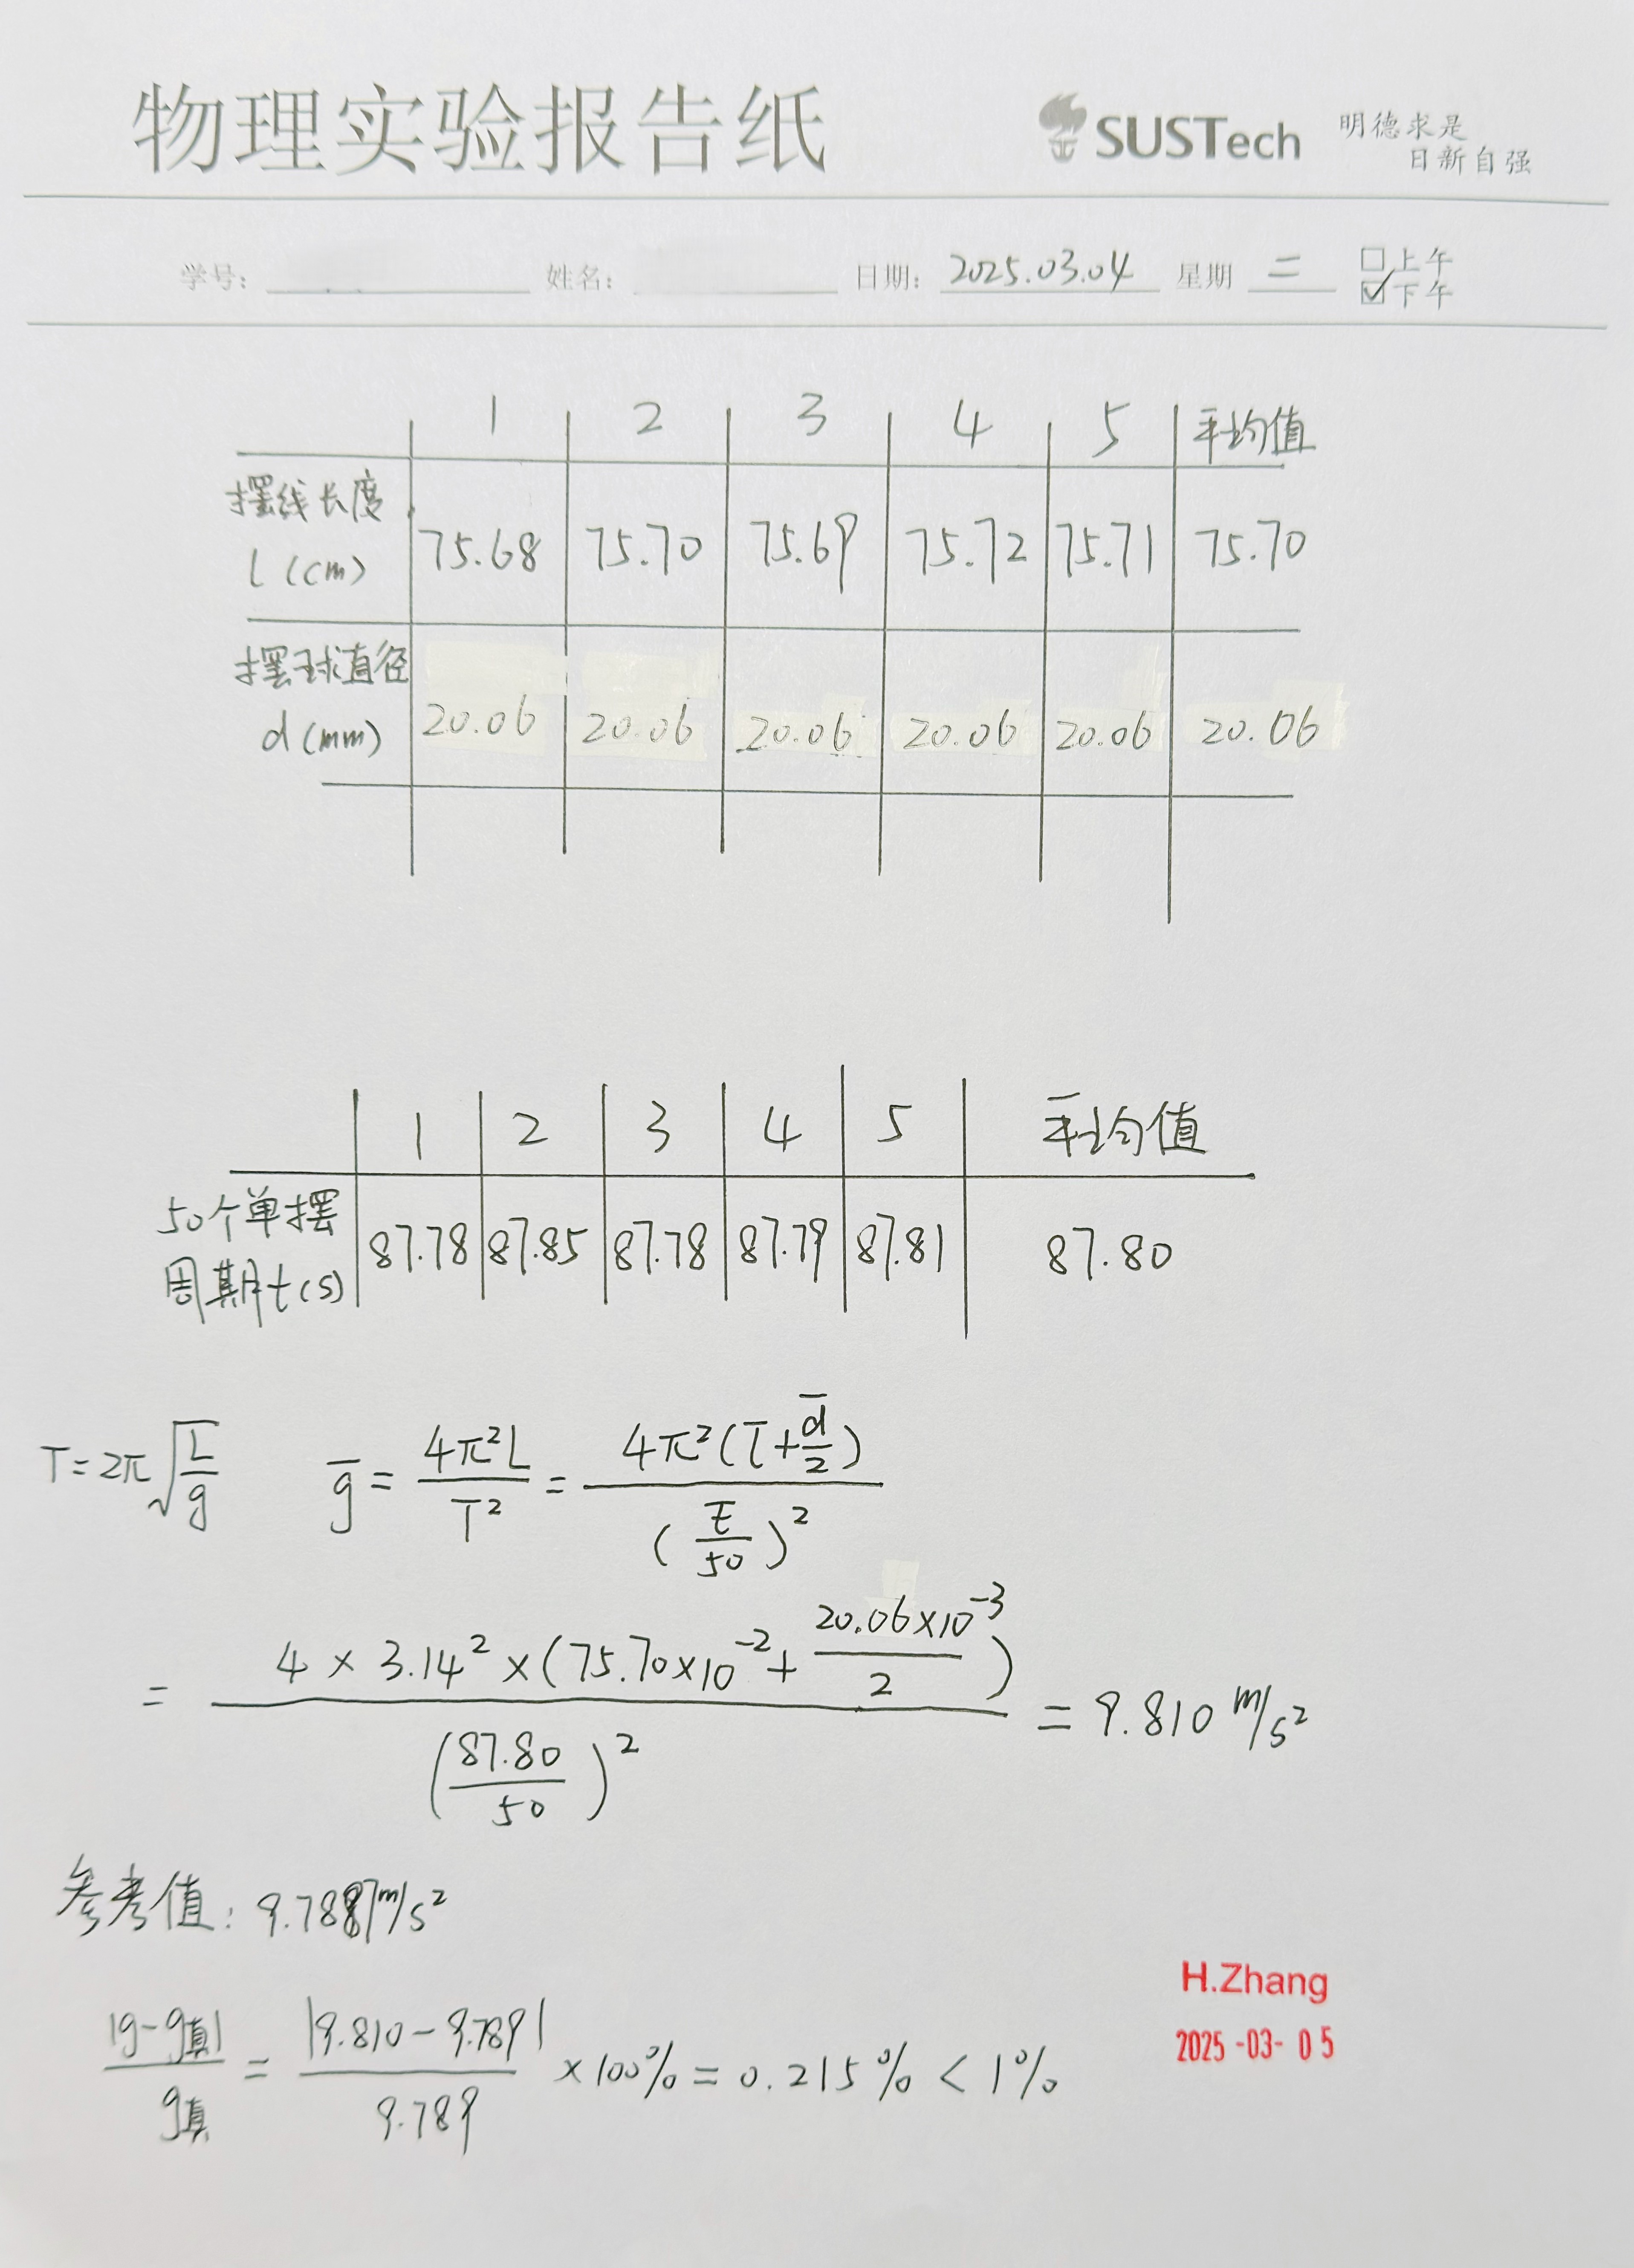 物理实验报告纸 SUSTech 明德求是
日新自强
学号： 姓名： 日期： 2025.03.04 星期 二 □上午
☑下午
1 2 3 4 5 平均值
摆线长度 l (cm) 75.68 75.70 75.69 75.72 75.71 75.70
摆球直径 d (mm) 20.06 20.06 20.06 20.06 20.06 20.06
1 2 3 4 5 平均值
50个单摆周期t(s) 87.78 87.85 87.78 87.79 87.81 87.80
T=2π√(L/g) ḡ = 4π²L/T² = 4π²(l̄+d̄/2)/(t̄/50)²
= 4×3.14²×(75.70×10⁻²+20.06×10⁻³/2)/(87.80/50)² = 9.810 m/s²
参考值: 9.7887m/s²
|g-g真|/g真 = |9.810-9.789|/9.789 ×100% = 0.215% < 1%
H.Zhang
2025-03-05